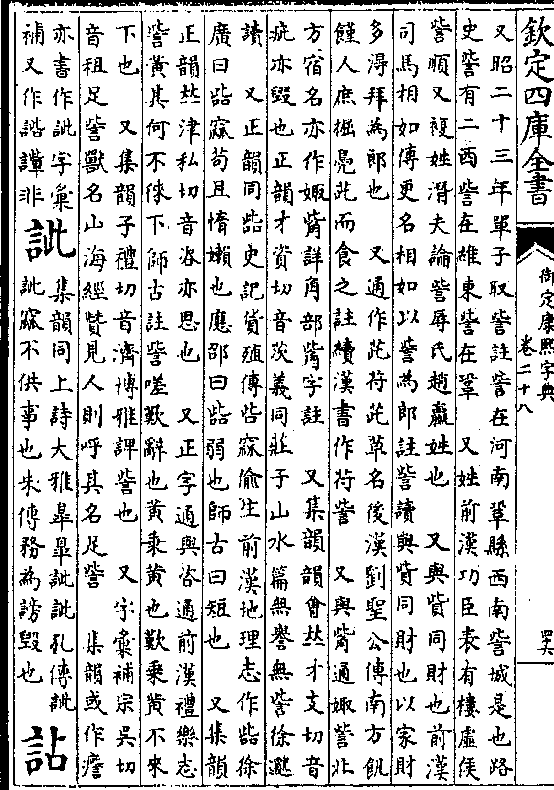 欽定四庫全書
御定康熙字典
卷二十八
又昭二十三年單子取訾註訾在河南鞏縣西南訾城是也路
史訾有二西訾在維東訾在鞏　又姓前漢功臣表有樓虛侯
訾順又複姓潛夫論訾辱氏趙嬴姓也　又與貲同財也前漢
司馬相如傳更名相如以訾為郎註訾讀與貲同財也以家財
多得拜為郎也　又通作茈苻茈草名後漢劉聖公傳南方飢
饉人庶掘鳧茈而食之註續漢書作苻訾　又與觜通娵訾北
方宿名亦作娵觜詳角部觜字註　又集韻韻會𠀤才支切音
疵亦毀也正韻才資切音茨義同莊子山水篇無譽無訾徐邈
讀　又正韻同呰史記貨殖傳呰窳偷生前漢地理志作呰徐
廣曰呰窳苟且惰嬾也應邵曰呰弱也師古曰短也　又集韻
正韻𠀤津私切音咨亦思也　又正字通與咨通前漢禮樂志
訾黃其何不徠下師古註訾嗟歎辭也黃乘黃也歎乘黃不來
下也　又集韻子禮切音濟博雅諀訾也　又字彙補宗吳切
音租足訾獸名山海經贊見人則呼其名足訾　集韻或作
亦書作訿字彙
補又作諮非
訿
集韻同上詩大雅皐皐訿訿孔傳訿
訿窳不供事也朱傳務為謗毀也
詀